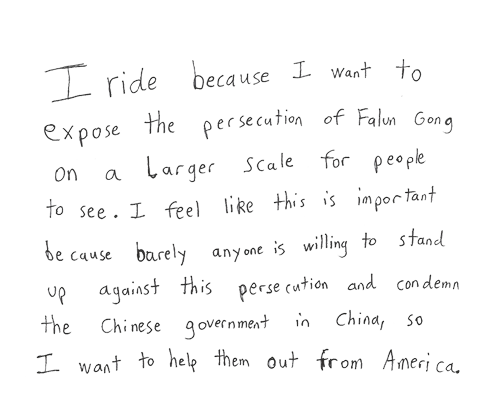 I ride because I want to
expose the persecution of Falun Gong
on a Larger scale for people
to see. I feel like this is important
because barely anyone is willing to stand
up against this persecution and condemn
the Chinese government in China, so
I want to help them out from America.